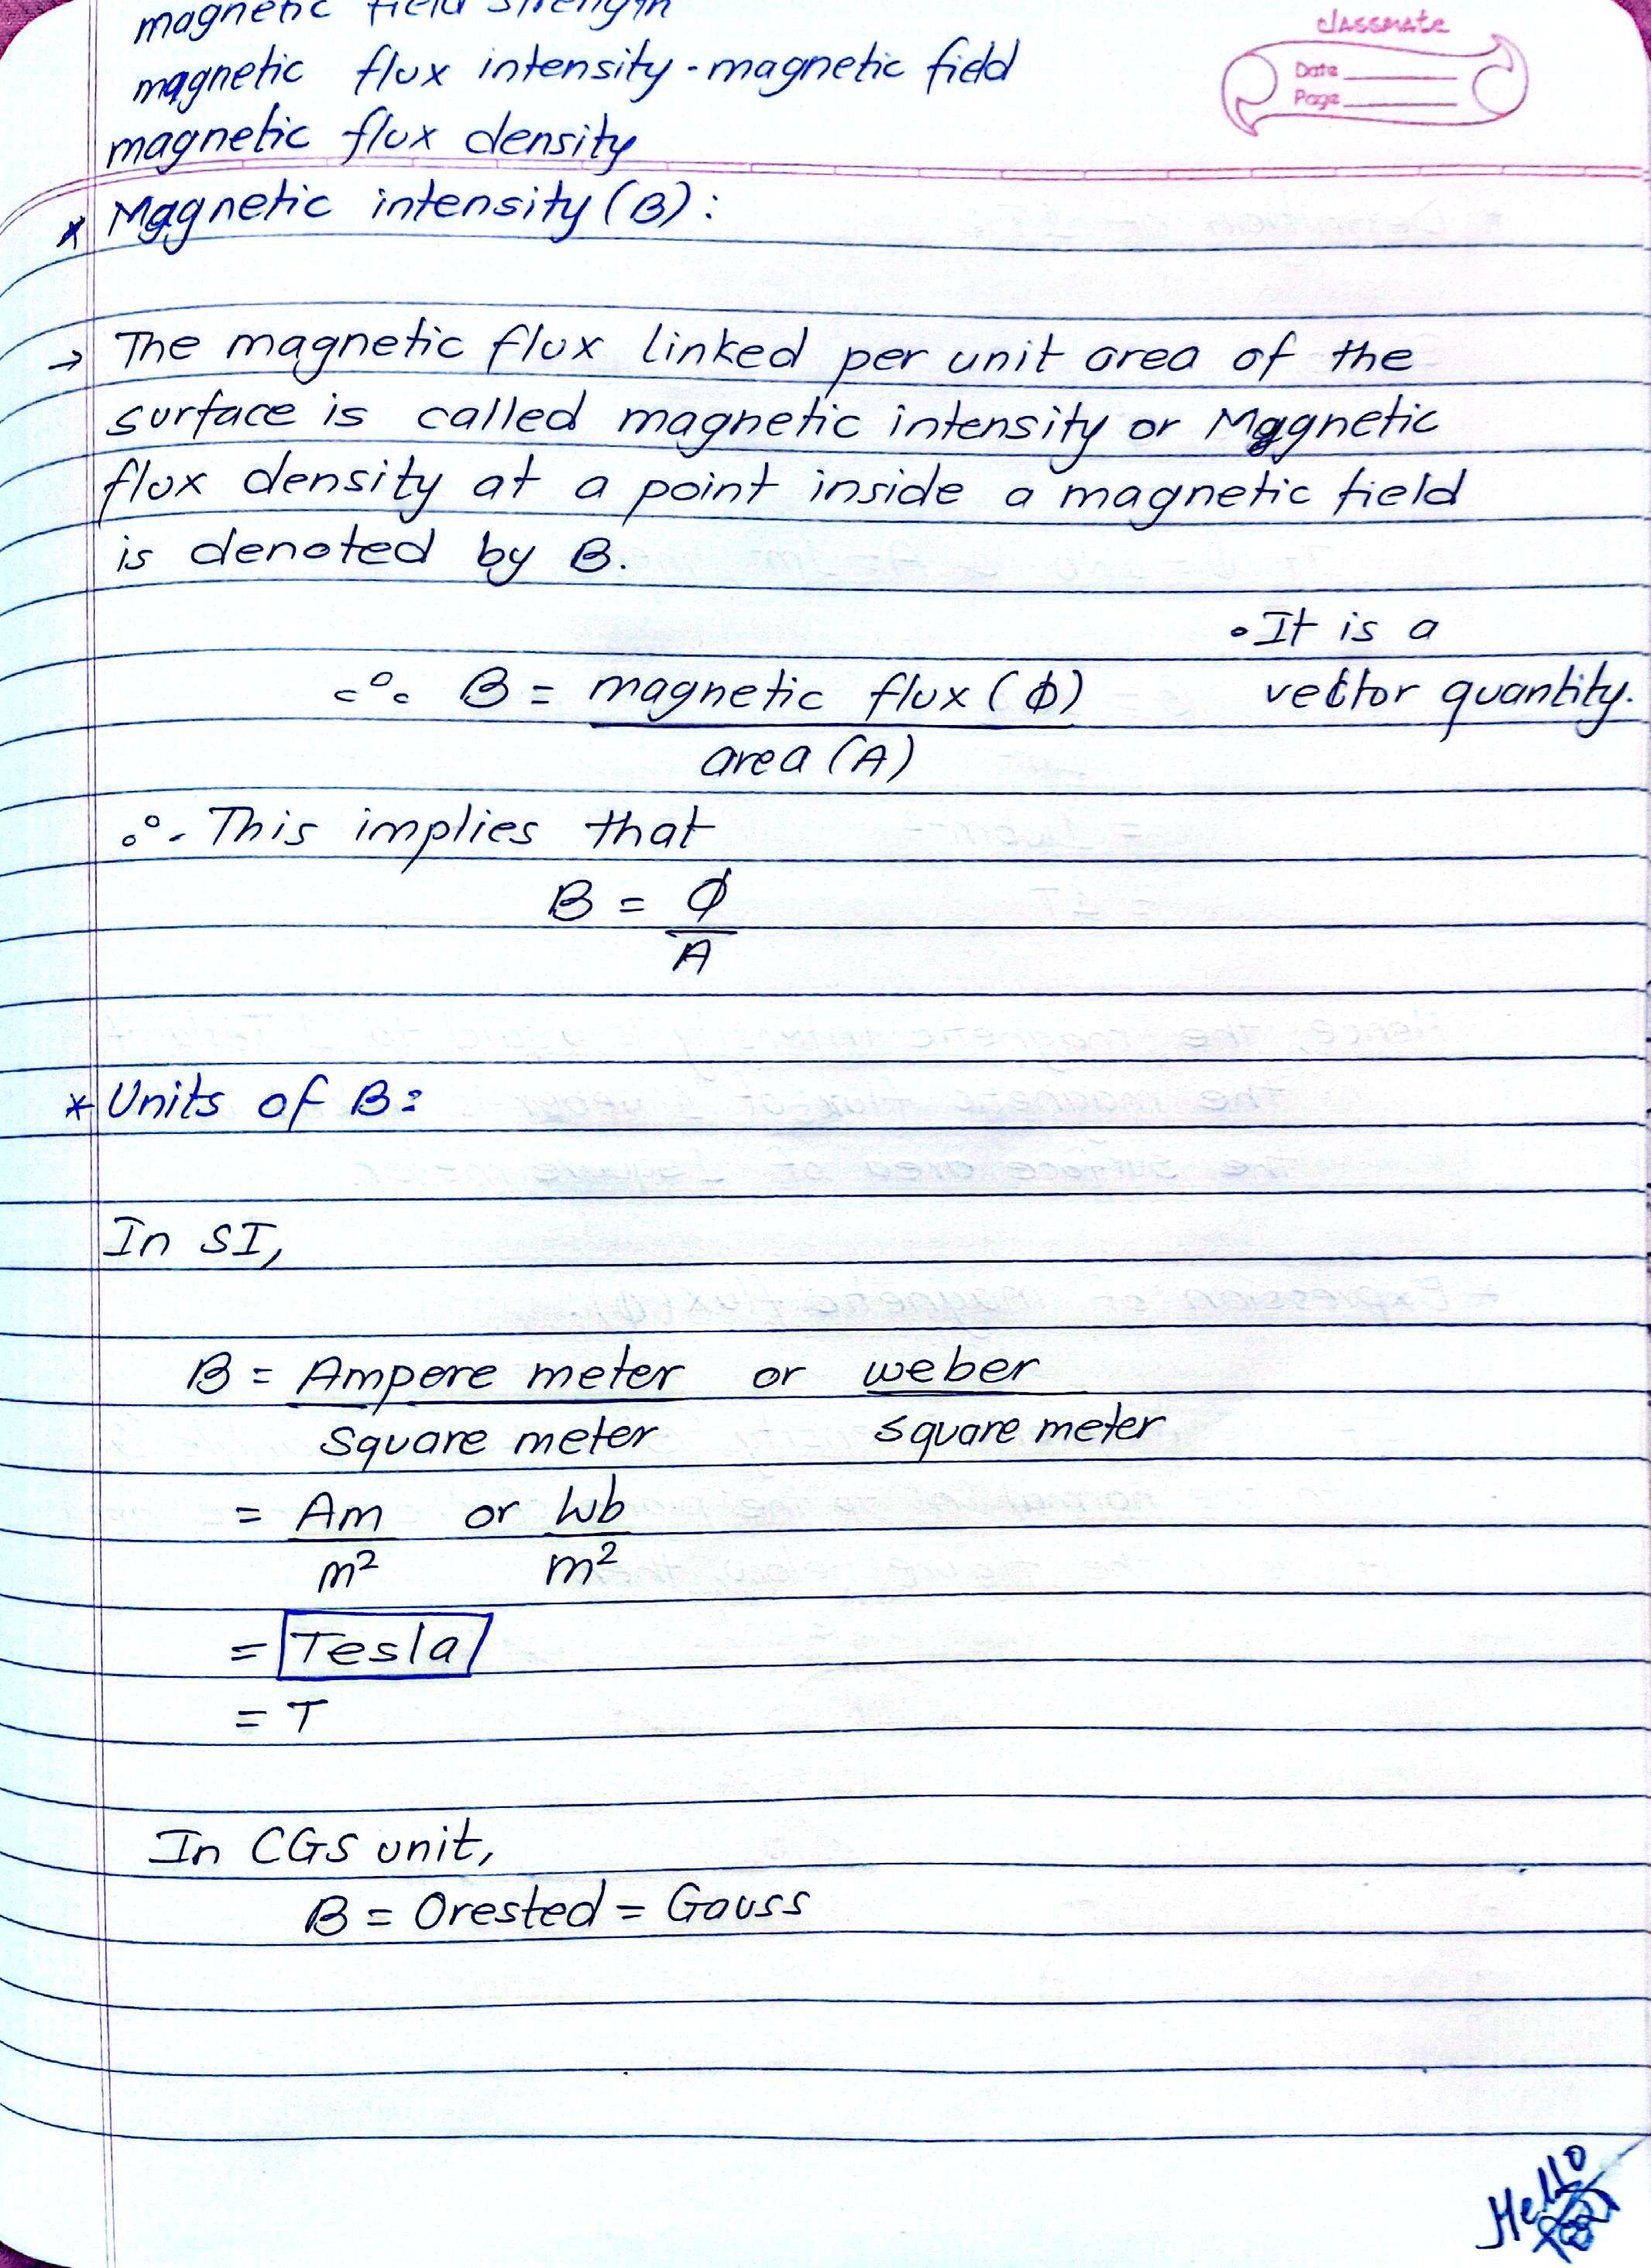 magnetic field strength
magnetic flux intensity - magnetic field
magnetic flux density
classmate
Date
Page
* Magnetic intensity (B):
→ The magnetic flux linked per unit area of the
surface is called magnetic intensity or Magnetic
flux density at a point inside a magnetic field
is denoted by B.
• It is a
vector quantity.
∴ B = magnetic flux (ϕ)
area (A)
∴ This implies that
B = ϕ
A
* Units of B:
In SI,
B = Ampere meter or weber
Square meter square meter
= Am or Wb
m² m²
= Tesla
= T
In CGS unit,
B = Orested = Gauss
Hello